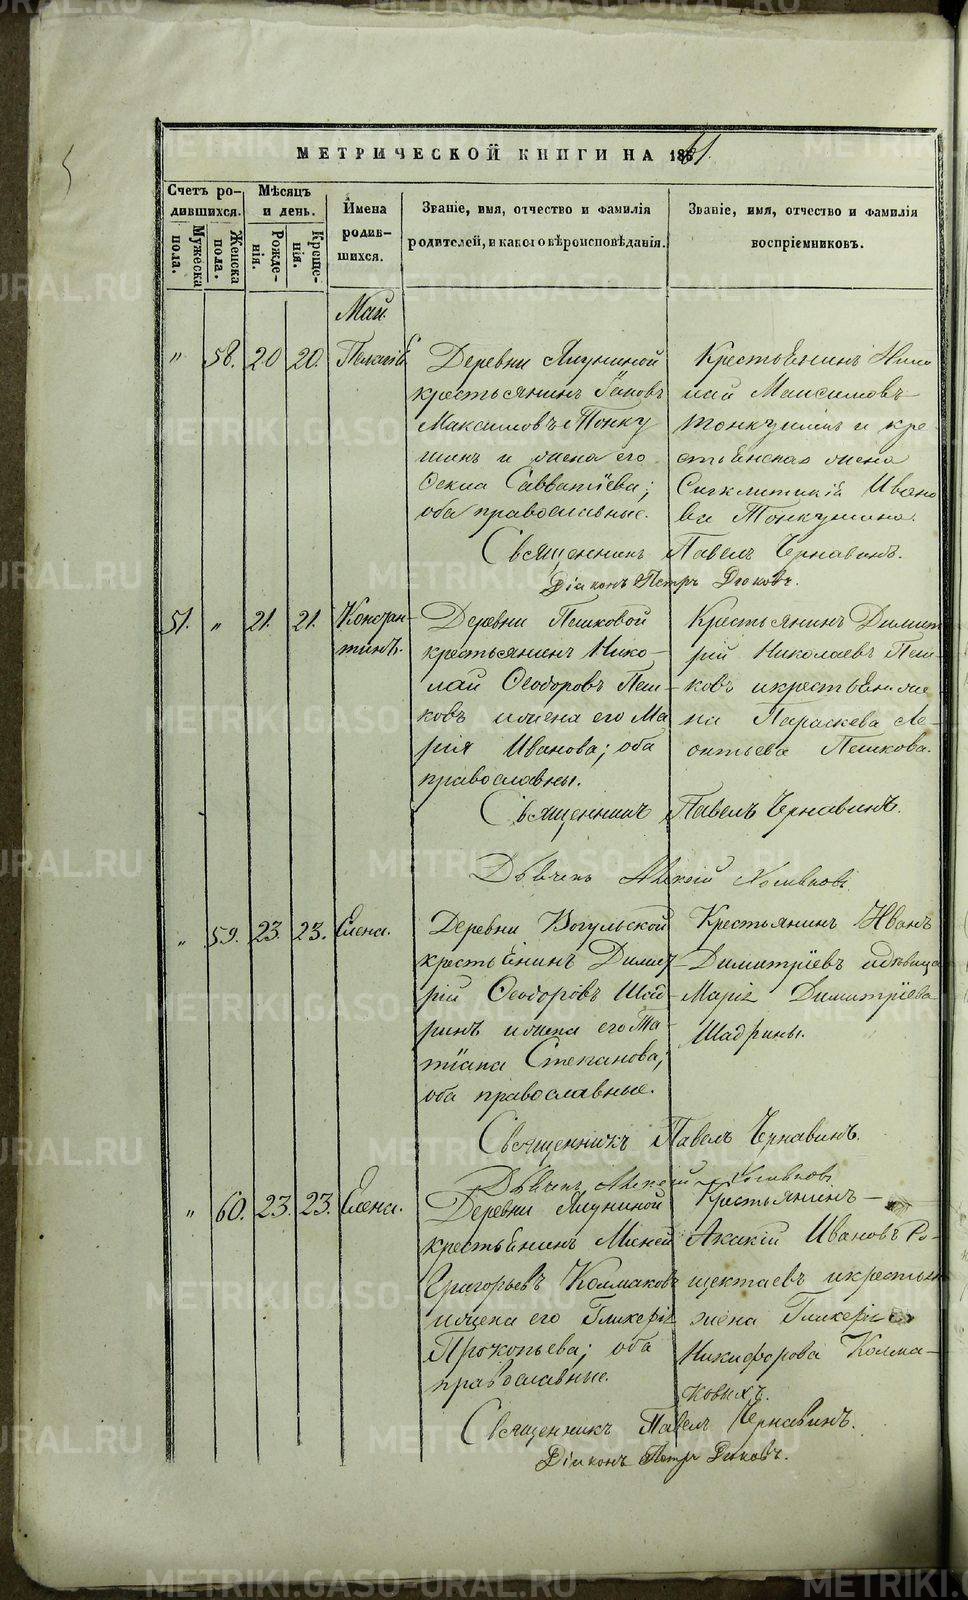 МЕТРИЧЕСКОЙ КНИГИ НА 1861.
Счетъ родившихся.
Мужеска пола.
Женска пола.
Мѣсяцъ и день.
Рожденія.
Крещенія.
Имена родившихся.
Званіе, имя, отчество и фамилія
родителей, и какого вѣроисповѣданія.
Званіе, имя, отчество и фамилія
воспріемниковъ.
Май.
" 58. 20 20. Пелагія
Деревни Ялуниной
крестьянинъ
Максимовъ Тонку
шинъ и жена его
Савватіева;
оба православные.
Крестьянинъ Нико
лай Максимовъ
Тонкушинъ и кре
стьянская жена
Сигклитикія Ивано
ва Тонкушина.
Священникъ Павелъ Чернавинъ.
Діаконъ Петръ
51. " 21. 21. Констан-
тинъ.
Деревни Пешковой
крестьянинъ Нико-
лай Ѳеодоровъ Пеш-
ковъ и жена его Ма
рія Иванова; оба
православны.
Крестьянинъ Димит
рій Николаевъ Пеш-
ковъ и крестьян. же
на Параскева Ле-
онтьева Пешкова.
Священникъ Павелъ Чернавинъ.
Дьячекъ Алексѣй
" 59. 23. 23. Елена.
Деревни Вогульской
крестьянинъ Димит-
рій Ѳеодоровъ Шад-
ринъ и жена его Та-
тіана Степанова;
оба православные.
Крестьянинъ Иванъ
Димитріевъ и дѣвица
Марія Димитріева
Шадрины.
Священникъ Павелъ Чернавинъ.
Дьячекъ Алексѣй
" 60. 23. 23. Елена.
Деревни Ялуниной
крестьянинъ
Григорьевъ Колмаковъ
и жена его Гликерія
Прокопьева; оба
православные.
Крестьянинъ
Акакій Ивановъ Ро-
щектаевъ и крестьян
жена Гликерія
Никифорова Колма-
ковыхъ.
Священникъ Павелъ Чернавинъ.
Діаконъ Петръ
METRIKI.GASO-URAL.RU